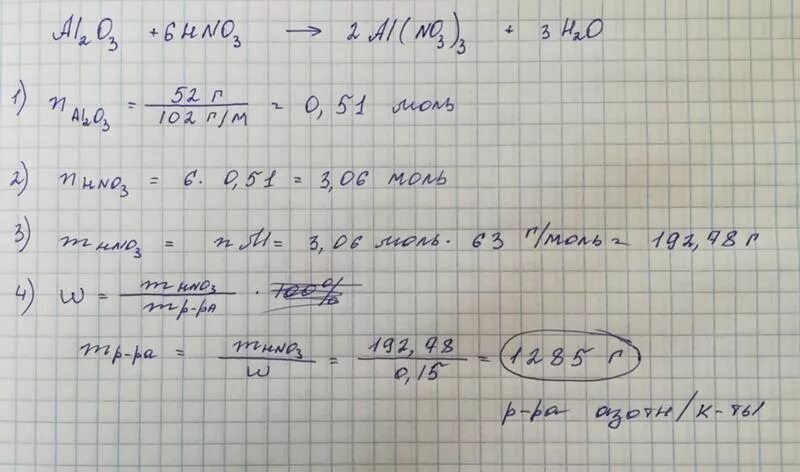 Al₂O₃ + 6HNO₃ → 2Al(NO₃)₃ + 3H₂O
1) n Al₂O₃ = 52 г / 102 г/м = 0,51 моль
2) n HNO₃ = 6 · 0,51 = 3,06 моль
3) m HNO₃ = nM = 3,06 моль · 63 г/моль = 192,78 г
4) W = m HNO₃ / m р-ра · 100%
m р-ра = m HNO₃ / W = 192,78 / 0,15 = 1285 г
р-ра азотн/к-ты